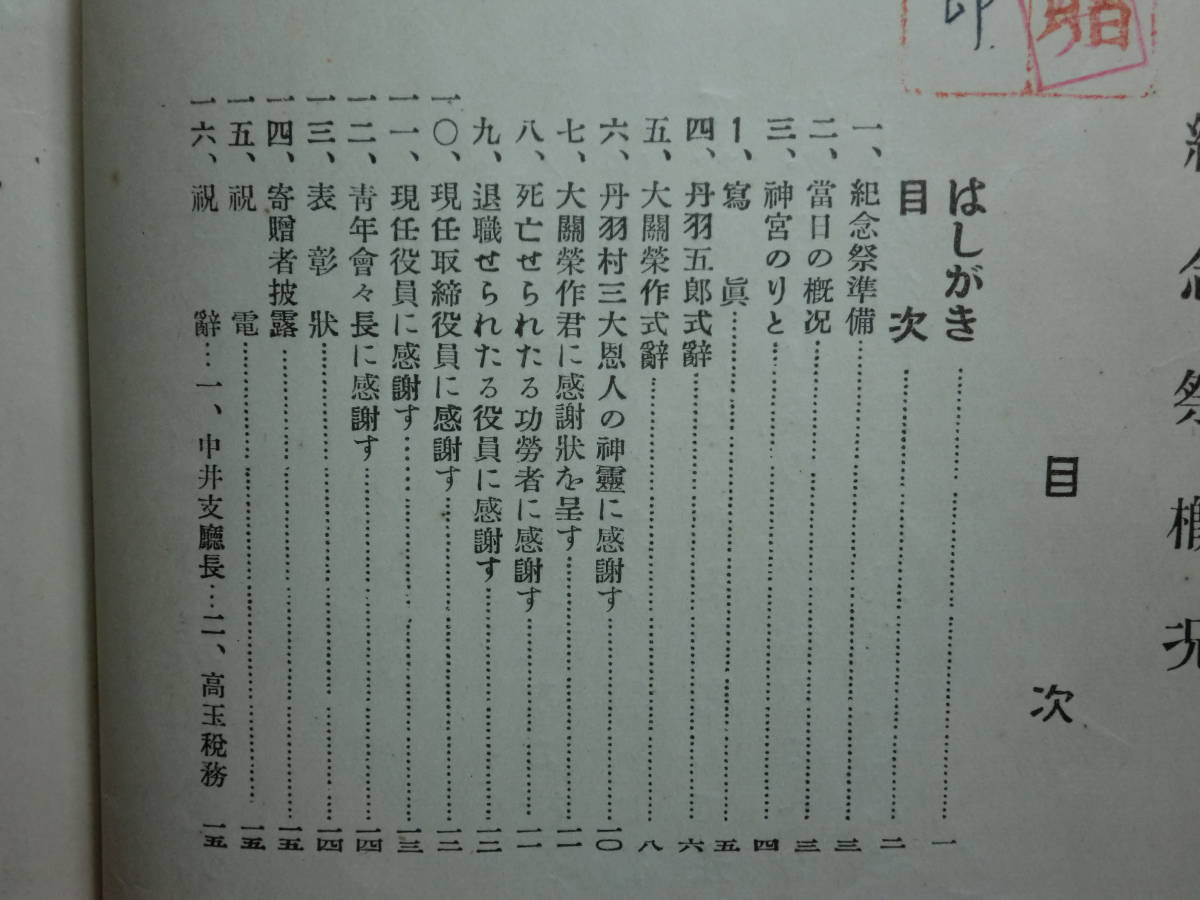 紀念祭概況
目次
はしがき…一
目次…二
一、紀念祭準備…三
二、當日の概况…三
三、神宮のりと…四
1、寫眞…五
四、丹羽五郎式辭…六
五、大關榮作式辭…八
六、丹羽村三大恩人の神靈に感謝す…一〇
七、大關榮作君に感謝狀を呈す…一一
八、死亡せられたる功勞者に感謝す…一一
九、退職せられたる役員に感謝す…一二
一〇、現任取締役員に感謝す…一二
一一、現任役員に感謝す…一三
一二、靑年會々長に感謝す…一四
一三、表彰狀…一四
一四、寄贈者披露…一五
一五、祝電…一五
一六、祝辭…一、中井支廳長…二、高玉稅務 一五
印